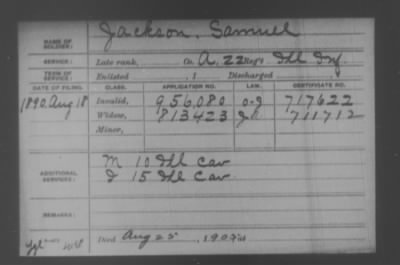 NAME OF SOLDIER: Jackson, Samuel
SERVICE: Late rank, Co. A, 22 Reg't Ill Inf.
TERM OF SERVICE: Enlisted , 1 Discharged
DATE OF FILING. CLASS. APPLICATION NO. LAW. CERTIFICATE NO.
1890. Aug 18 Invalid, 956,080 717622
Widow, 813423 711712
Minor,
ADDITIONAL SERVICES: M 10 Ill Cav
I 15 Ill Cav
REMARKS:
Died Aug 25, 190